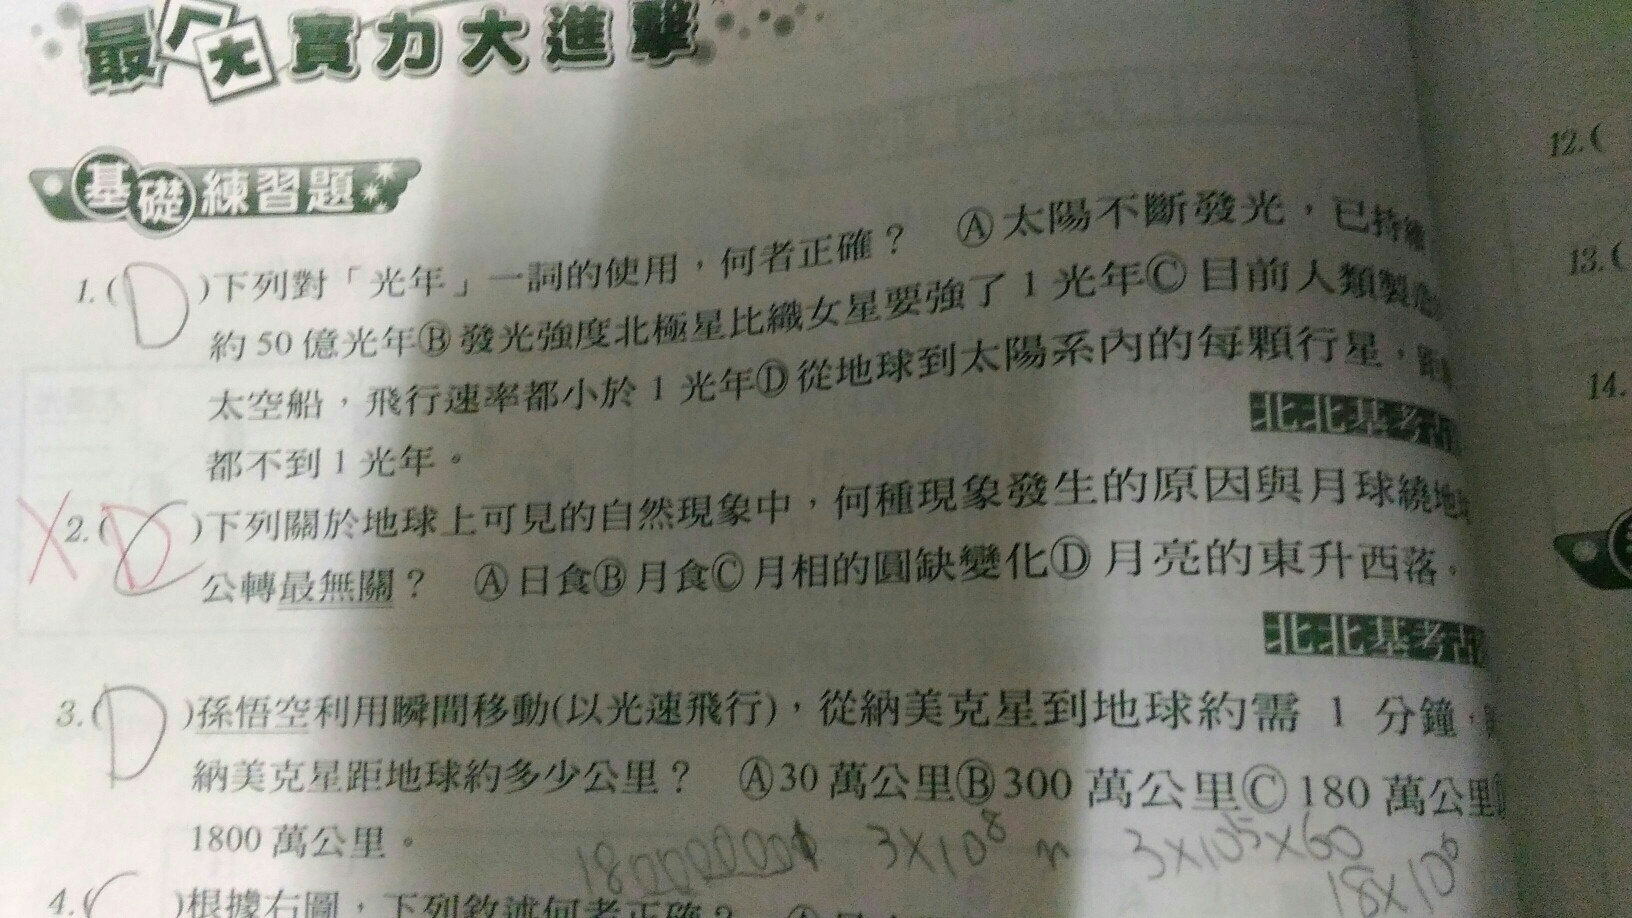 最大實力大進擊
基礎練習題
12.(
1.(D)下列對「光年」一詞的使用，何者正確？ Ⓐ太陽不斷發光，已持續
13.(
約50億光年Ⓑ發光強度北極星比織女星要強了1光年Ⓒ目前人類製造
太空船，飛行速率都小於1光年Ⓓ從地球到太陽系內的每顆行星，距
14.
都不到1光年。
北北基考古
X2.(D)下列關於地球上可見的自然現象中，何種現象發生的原因與月球繞地球
公轉最無關？ Ⓐ日食Ⓑ月食Ⓒ月相的圓缺變化Ⓓ月亮的東升西落。
北北基考古
3.(D)孫悟空利用瞬間移動(以光速飛行)，從納美克星到地球約需 1 分鐘，
納美克星距地球約多少公里？ Ⓐ30萬公里Ⓑ300萬公里Ⓒ180萬公里Ⓓ
1800萬公里。
3×10⁸ m 3×10⁵×60
18×10⁶
4.( )根據右圖，下列敘述何者正確？